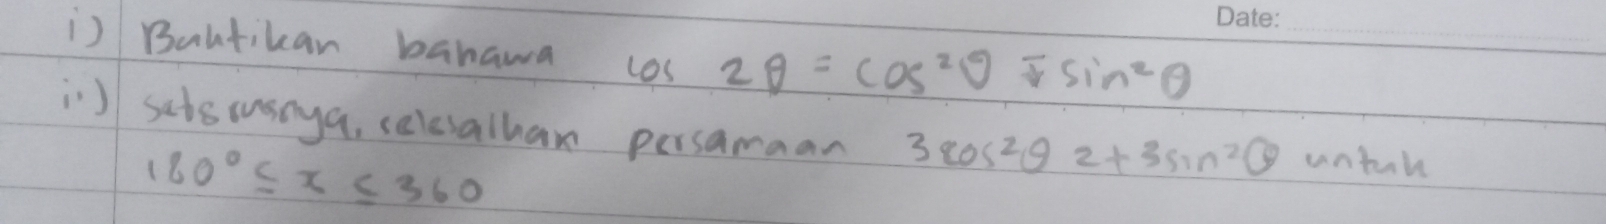 Date:
i) Buktikan bahawa cos 2θ = cos²θ - sin²θ
ii) seterusnya, selesaikan persamaan 3cos²θ 2+3sin²θ untuk
180° ≤ x ≤ 360